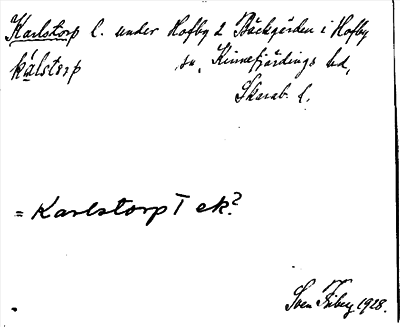 Karlstorp l. under Hofby 2 Bäckgården i Hofby
kálstorp sn, Kinnefjärdings hd,
Skarab. l.
= Karlstorp I ek?
Sven Friberg 1928.